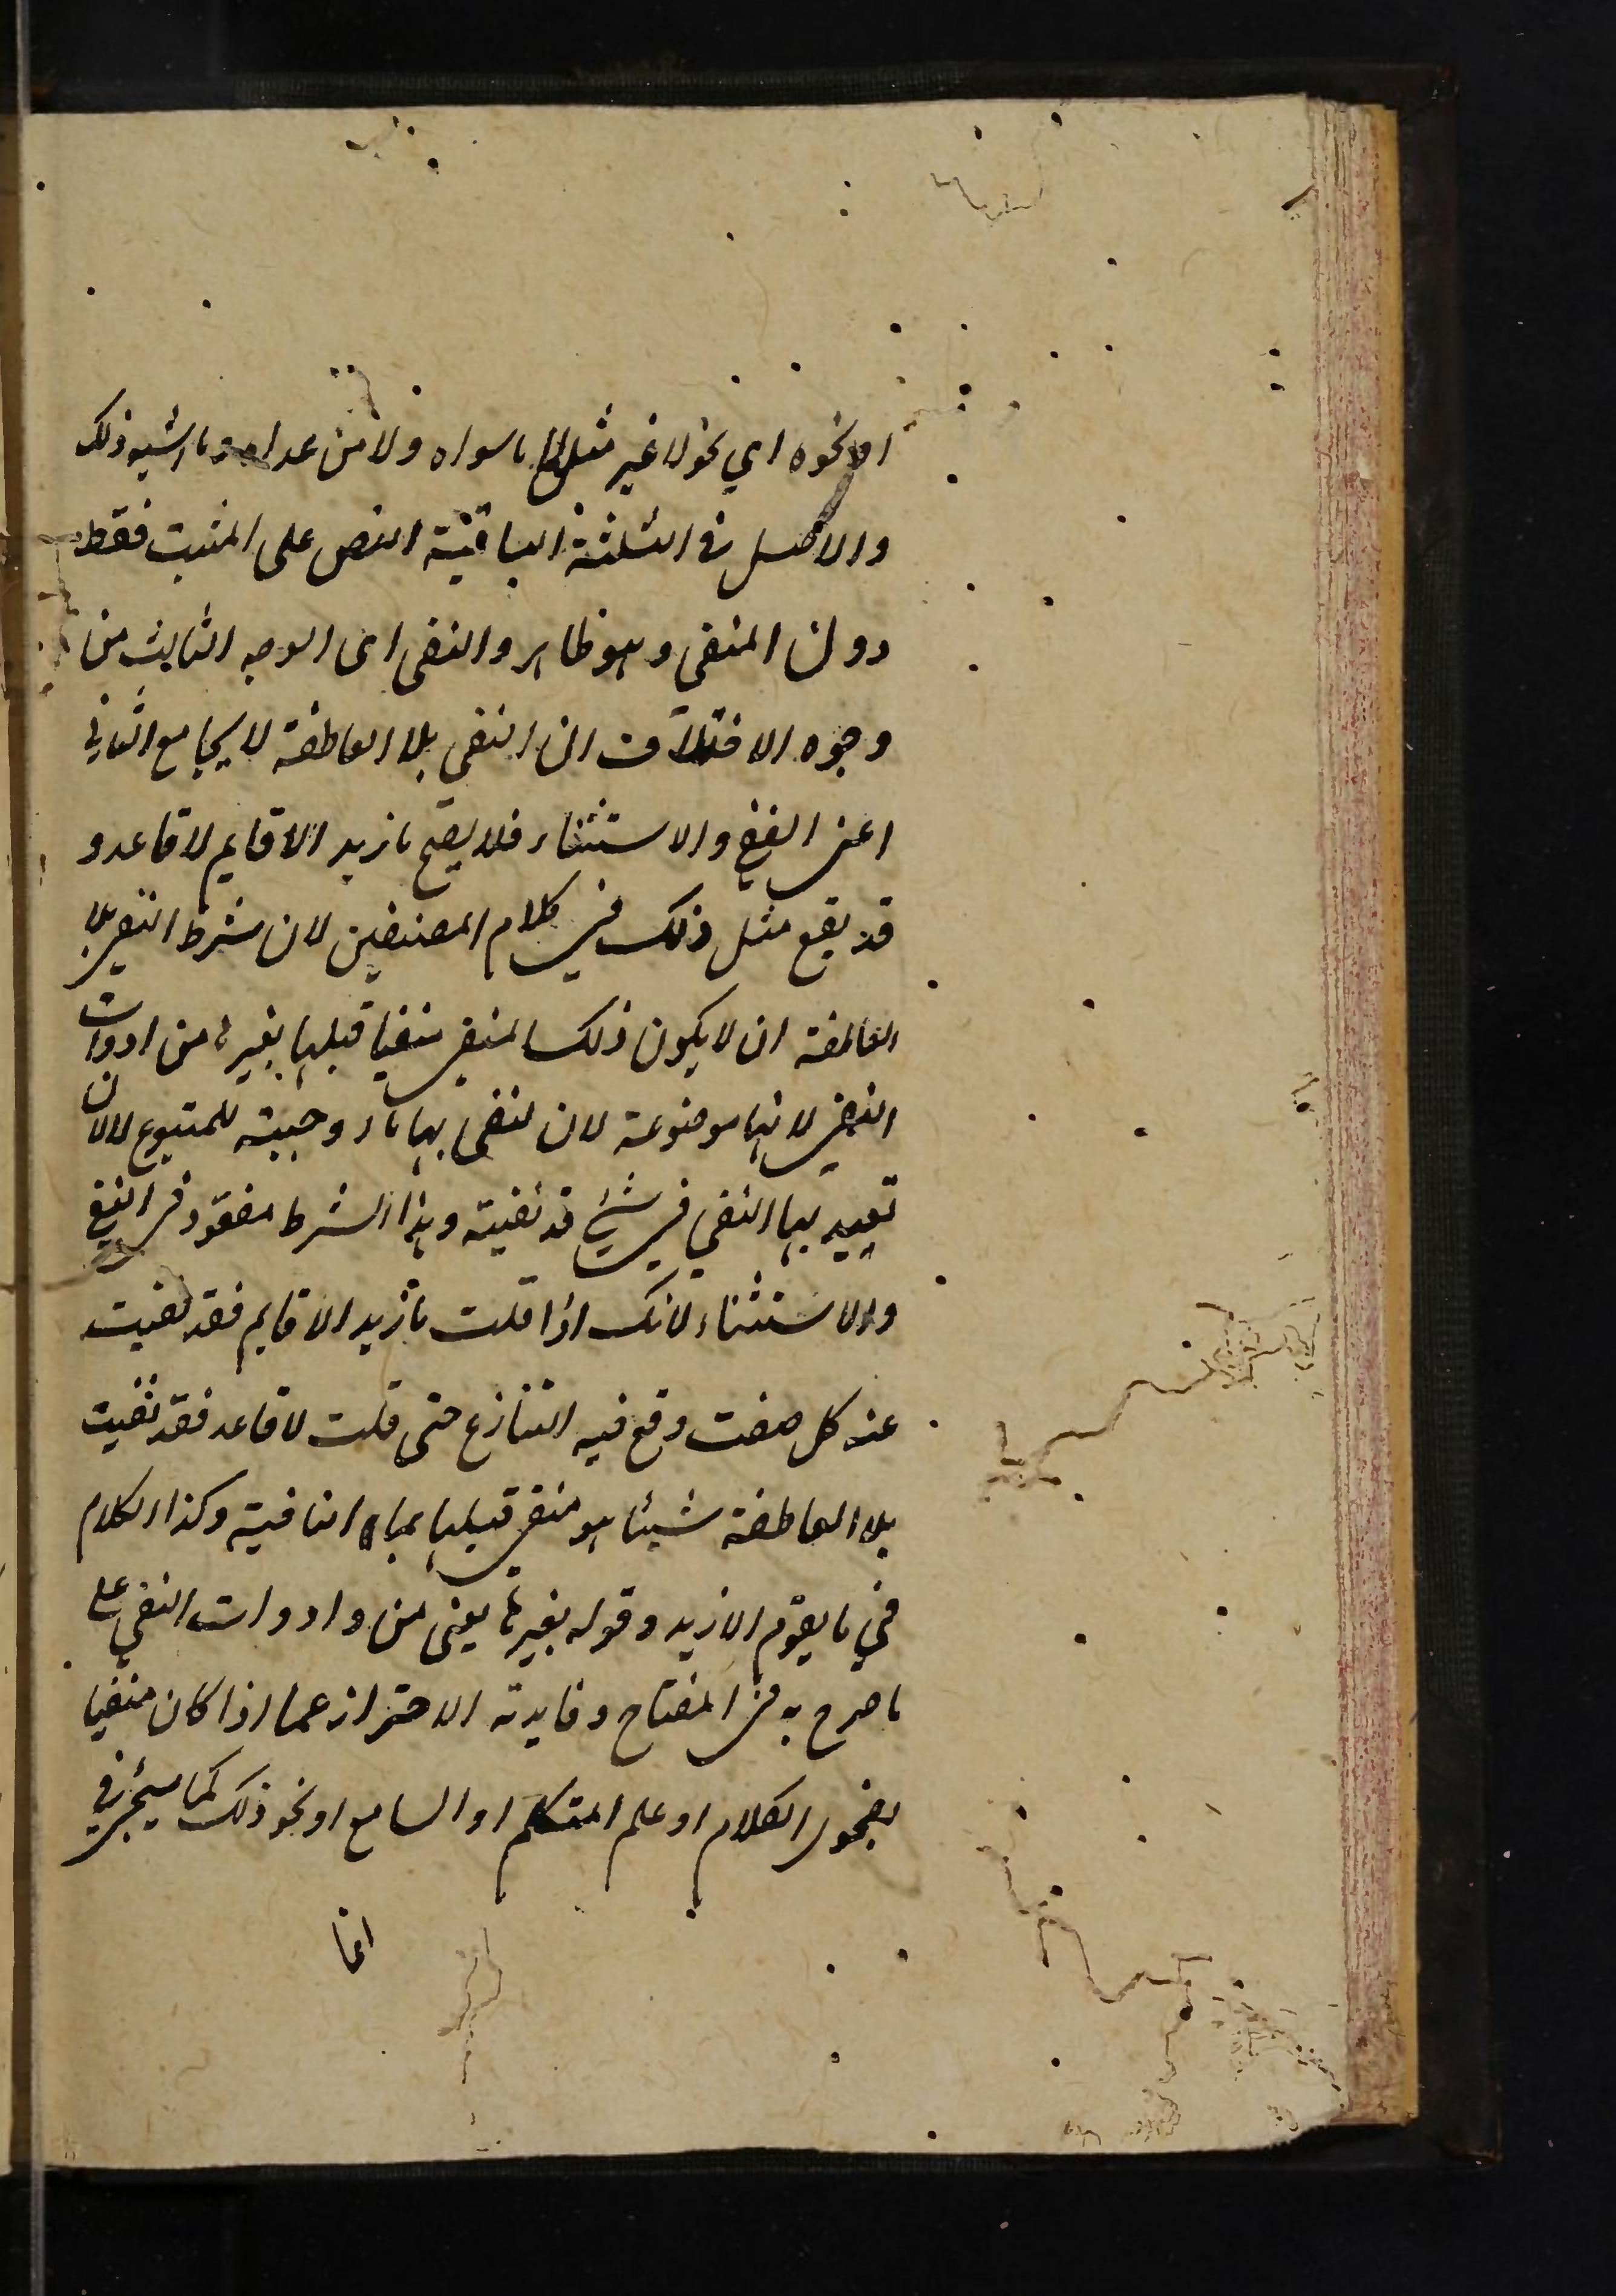 او نحوه اي نحو لا غير مثل لا ما سواه ولا من عداه وما اشبه ذلك
والاصل في الثلثة الباقية النص على المثبت فقط
دون المنفى وهو ظاهر والنفى اى الوجه الثالث من
وجوه الاختلاف ان النفى بلا العاطفة لا يجامع الثاني
اعنى النفي والاستثناء فلا يصح ما زيد الا قايم لا قاعد و
قد يقع مثل ذلك في كلام المصنفين لان شرط النفى بلا
العاطفة ان لا يكون ذلك المنفى منفيا قبلها بغيرها من ادوات
النفى لانها موضوعة لان تنفى بها ما اوجبته للمتبوع لا لان
تعيد بها النفي في شيئ قد نفيته وهذا الشرط مفقود في النفي
والاستثناء لانك اذا قلت ما زيد الا قايم فقد نفيت
عنه كل صفت وقع فيه التنازع حتى قلت لا قاعد فقد نفيت
بلا العاطفة شيئا هو منفى قبلها بما النافية وكذا الكلام
في ما يقوم الا زيد وقوله بغيرها يعنى من وادوات النفي على
ما صرح به في المفتاح وفايدته الاحتراز عما اذا كان منفيا
بفحوى الكلام او علم المتكلم او السامع او نحو ذلك كما سيجئ في
انما